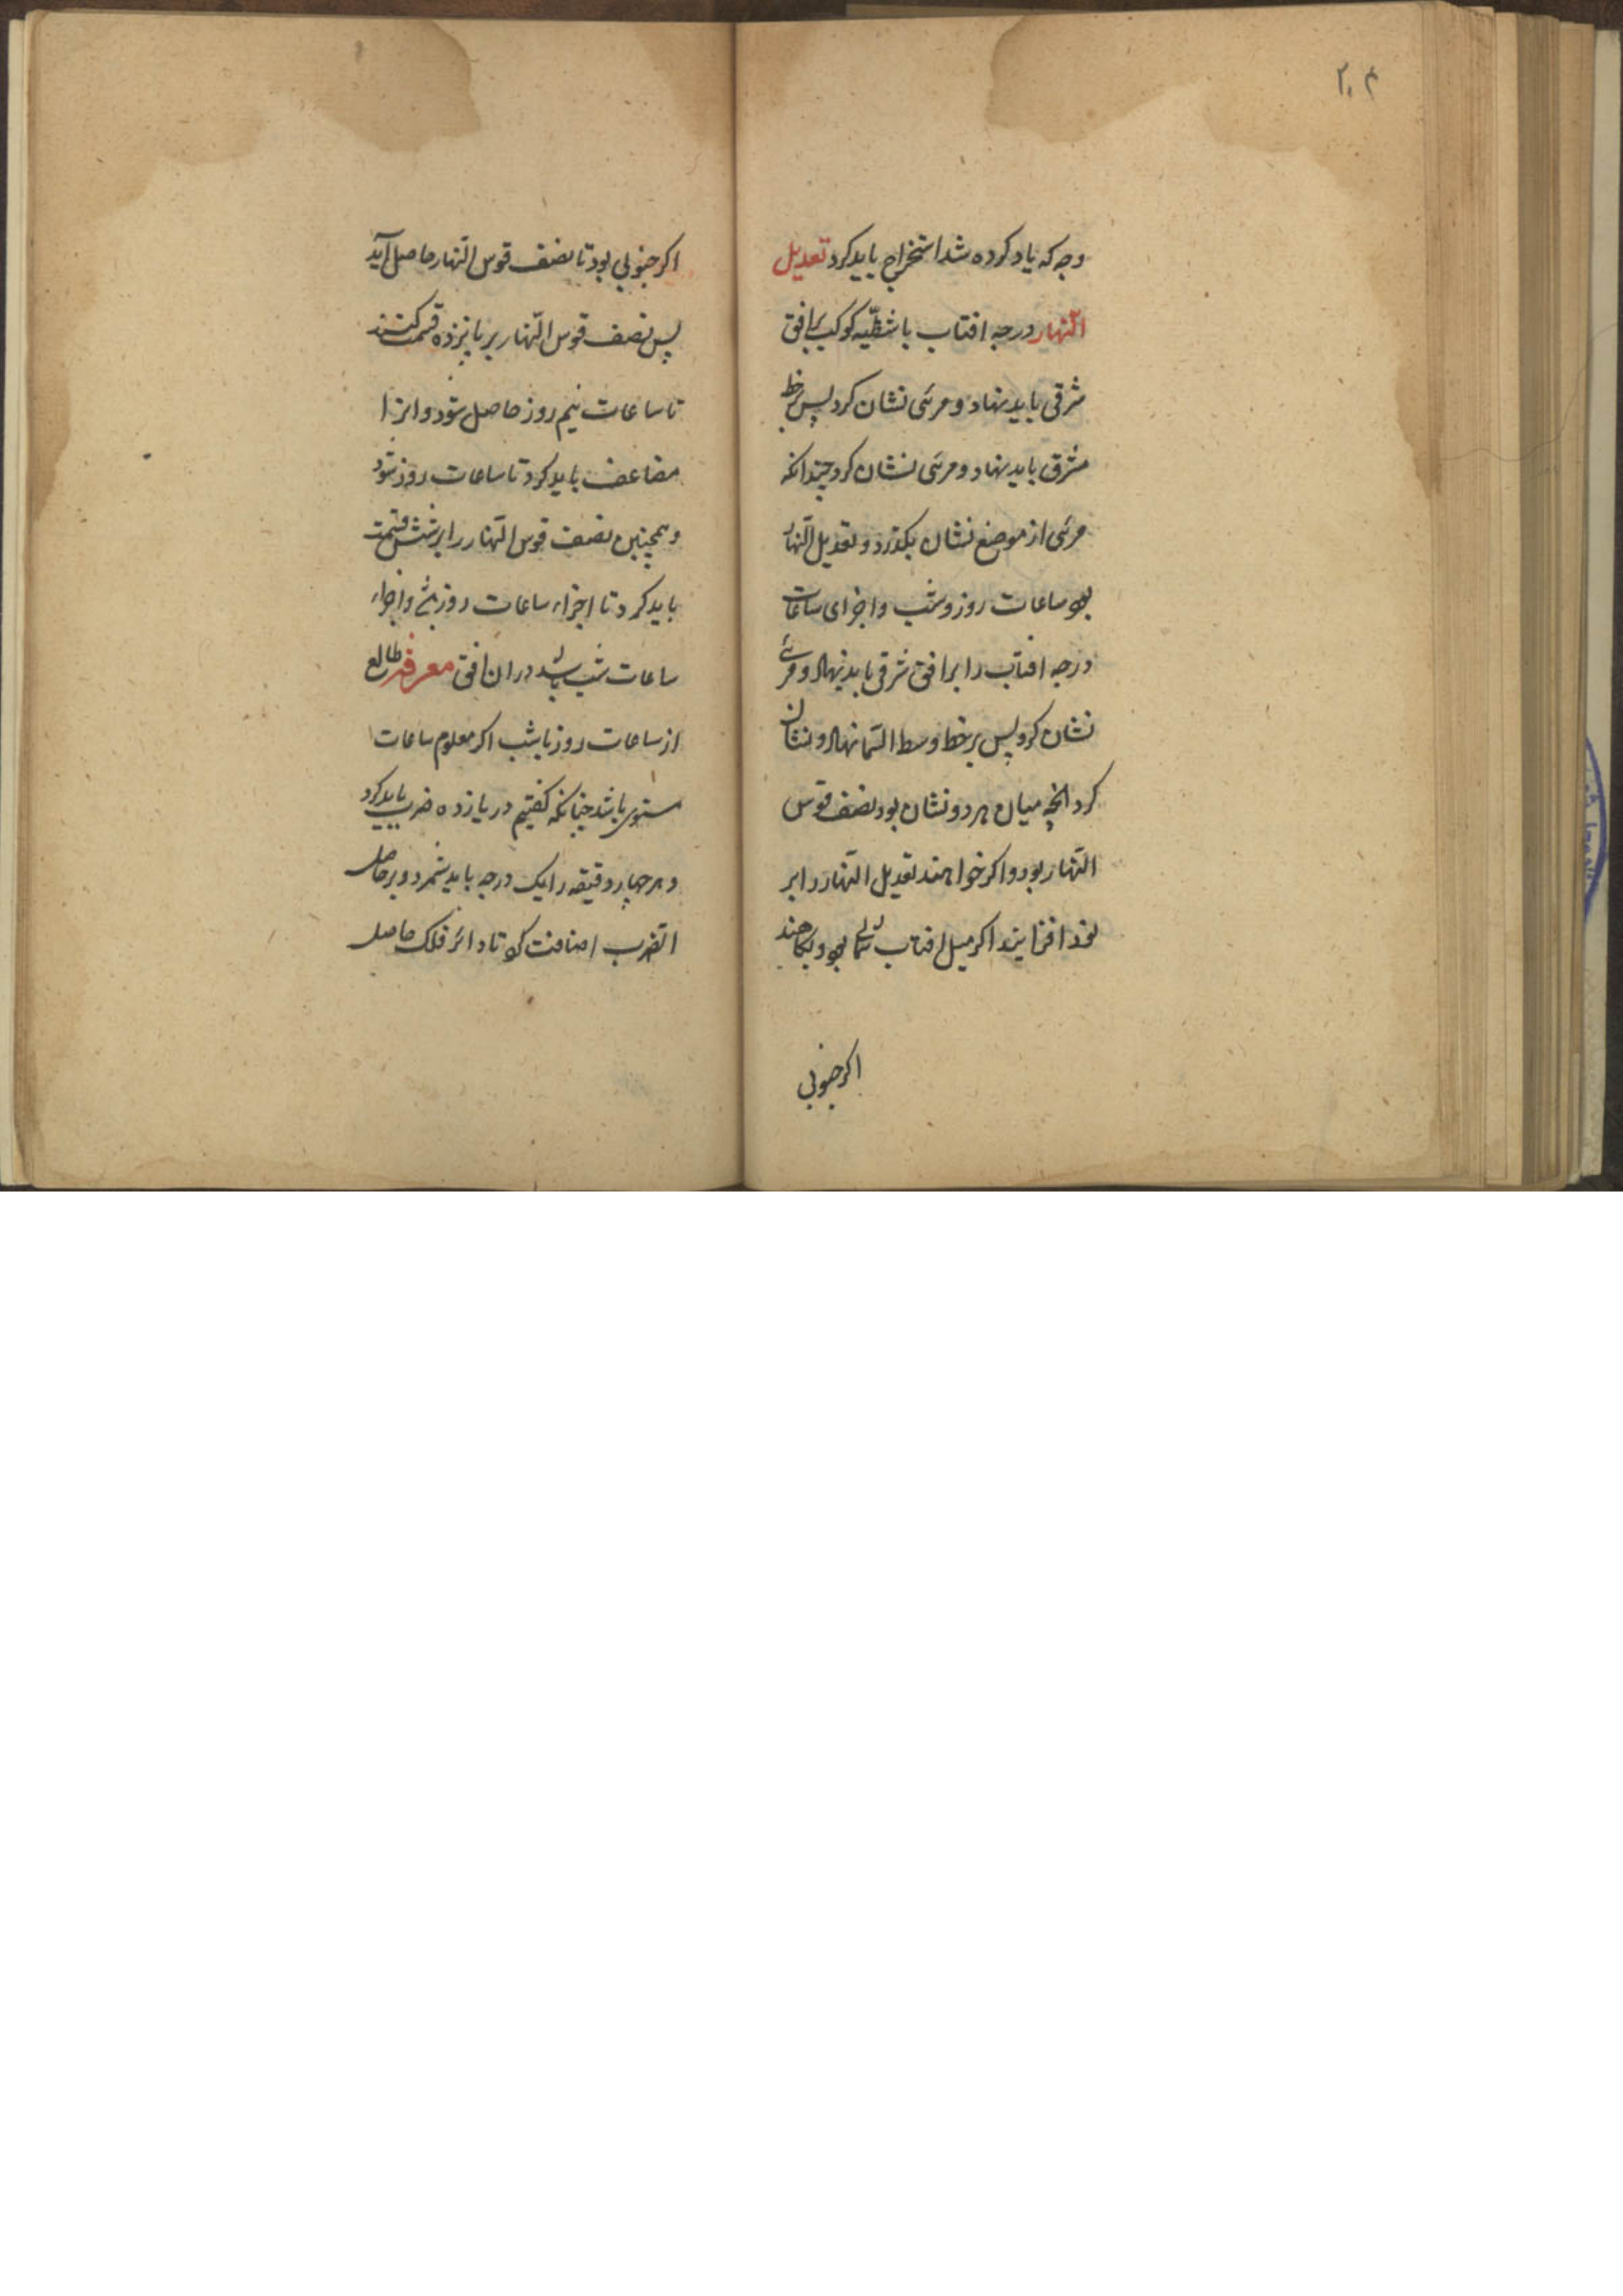 ۲۰۴
وجه که یاد کرده شد استخراج باید کرد تعدیل
النهار درجه افتاب یا شظیّه کوکب برافق
شرقی باید نهاد و مری نشان کرد پس بر خط
مشرق باید نهاد و مری نشان کرد چندانکه
مری از موضع نشان بکذرد و تعدیل النهار
بود ساعات روز و شب و اجزای ساعات
درجه افتاب را بر افق شرقی باید نهاد و مری
نشان کرد پس بر خط وسط السما نهاد و نشان
کرد انچه میان هر دو نشان بود نصف قوس
النهار بود و اکر خواهند تعدیل النهار را بر
افزایند اکر میل افتاب شمالی بود و بکاهند
اکر جنوبی
اکر جنوبی بود تا نصف قوس النهار حاصل آید
پس نصف قوس النهار بر پانزده قسمت کنند
تا ساعات نیم روز حاصل شود و انرا
مضاعف باید کرد تا ساعات روز شود
و همچنین نصف قوس النهار را بر شش قسمت
باید کرد تا اجزاء ساعات روز و اجزاء
ساعات شب باشد در ان افق معرفة طالع
از ساعات روز یا شب اکر معلوم ساعات
مستوی باشد چنانکه کفتیم در پانزده ضرب باید کرد
و هر چهار دقیقه را یک درجه باید شمرد و بر حاصل
الضرب اضافت کرد تا دائر فلک حاصل